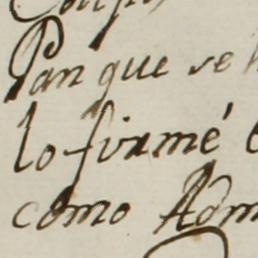 Pan que se
lo firmé
como Adm